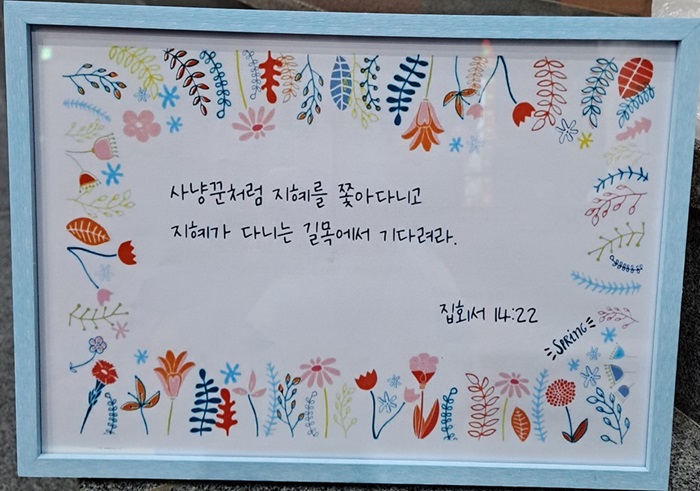 사냥꾼처럼 지혜를 쫓아다니고
지혜가 다니는 길목에서 기다려라.
집회서 14:22
SPRING